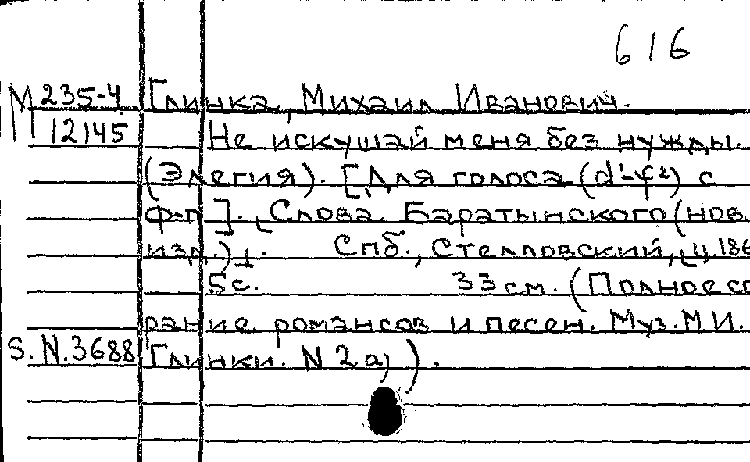 616
М 235-4 Глинка, Михаил Иванович.
12145 Не искушай меня без нужды.
(Элегия). [Для голоса (d¹-f²) с
ф-п]. [Слова Баратынского (нов.
изд.)]. Спб., Стелловский, [ц. 186
5с. 33 см. (Полное со
рание романсов и песен. Муз. М.И.
S.N.3688 Глинки. N 2а)).